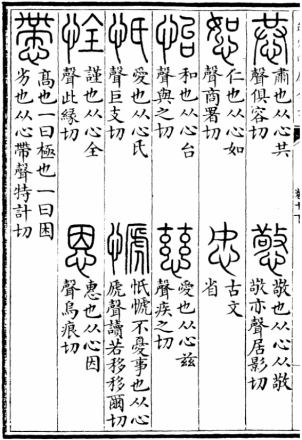 恭
肅也从心共
聲俱容切
憼
敬也从心从敬
敬亦聲居影切
恕
仁也从心如
聲商署切
㣽
古文
省
怡
和也从心台
聲與之切
慈
愛也从心兹
聲疾之切
忯
愛也从心氏
聲巨支切
㦒
忯㦒不憂事也从心
虒聲讀若移移爾切
恮
謹也从心全
聲此緣切
恩
惠也从心因
聲烏痕切
㦅
高也一曰極也一曰困
劣也从心帶聲特計切